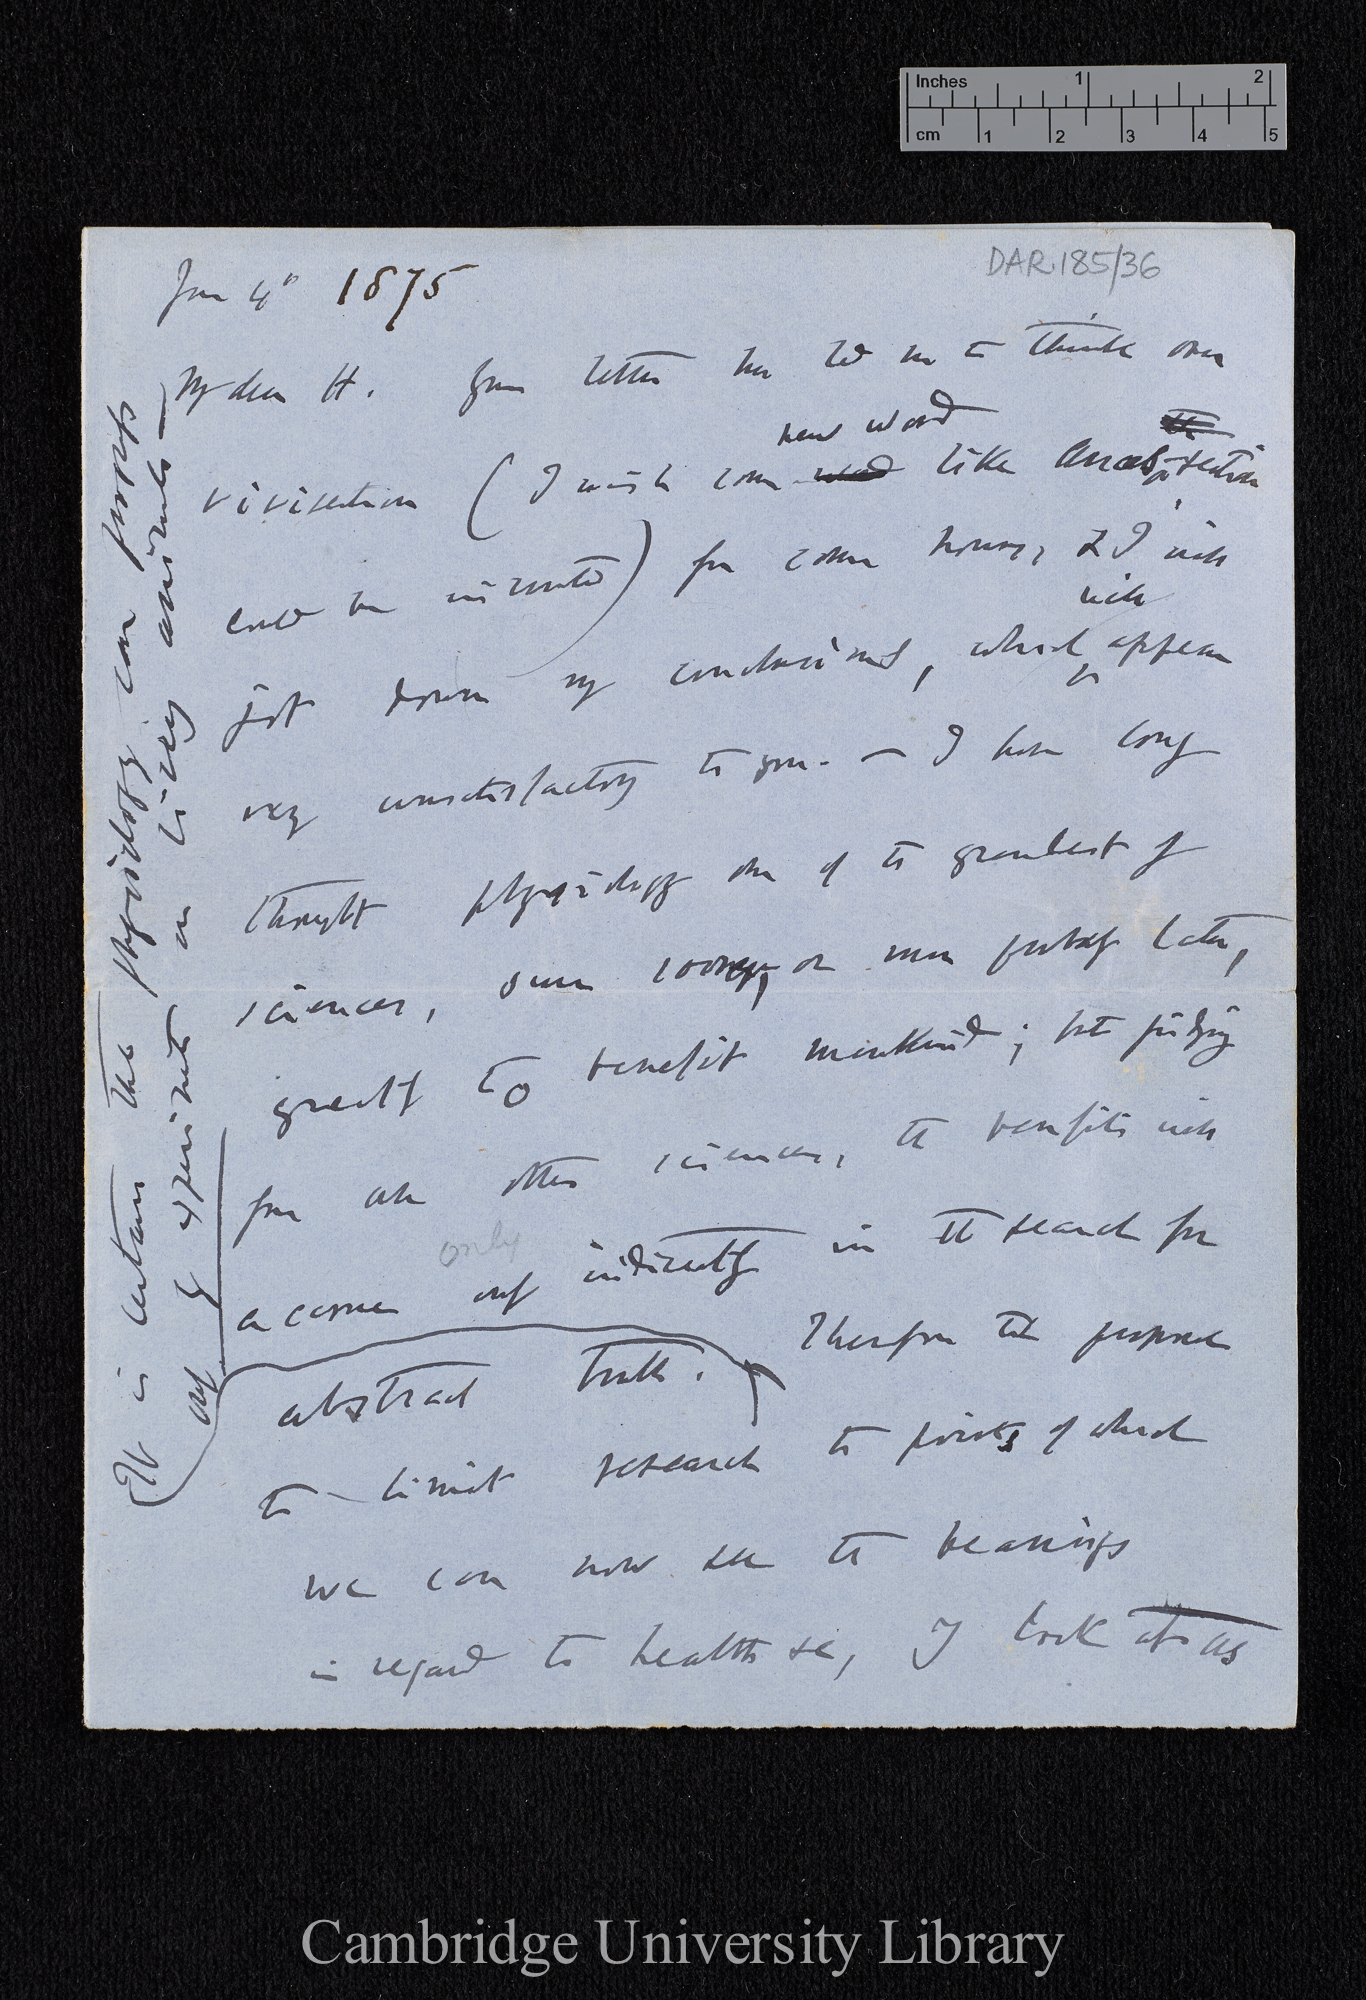 Inches 1 2
cm 1 2 3 4 5
DAR 185/36
Jan 4th 1875
My dear H. Your letter has led me to think over
new word
vivisection (I wish some word like anæs-section
could be invented) for some hours, & I will
will
jot down my conclusions, which appear
very unsatisfactory to you. — I have long
thought physiology one of the greatest of
sciences, sure sooner, or more probably later,
greatly to benefit mankind; but judging
from all other sciences, the benefits will
only
accrue only indirectly in the search for
abstract truth. Therefore the proposal
to limit research to points of which
we can now see the bearings
in regard to health &c, I look at as
It is certain that physiology can progress
only by experiments on living animals —
Cambridge University Library